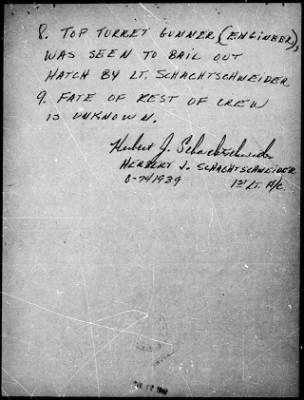 8. TOP TURRET GUNNER (ENGINEER),
WAS SEEN TO BAIL OUT
HATCH BY LT. SCHACHTSCHNEIDER
9. FATE OF REST OF CREW
IS UNKNOWN.
Herbert J. Schachtschneider
HERBERT J. SCHACHTSCHNEIDER
O-741939 1ST LT. A/C.